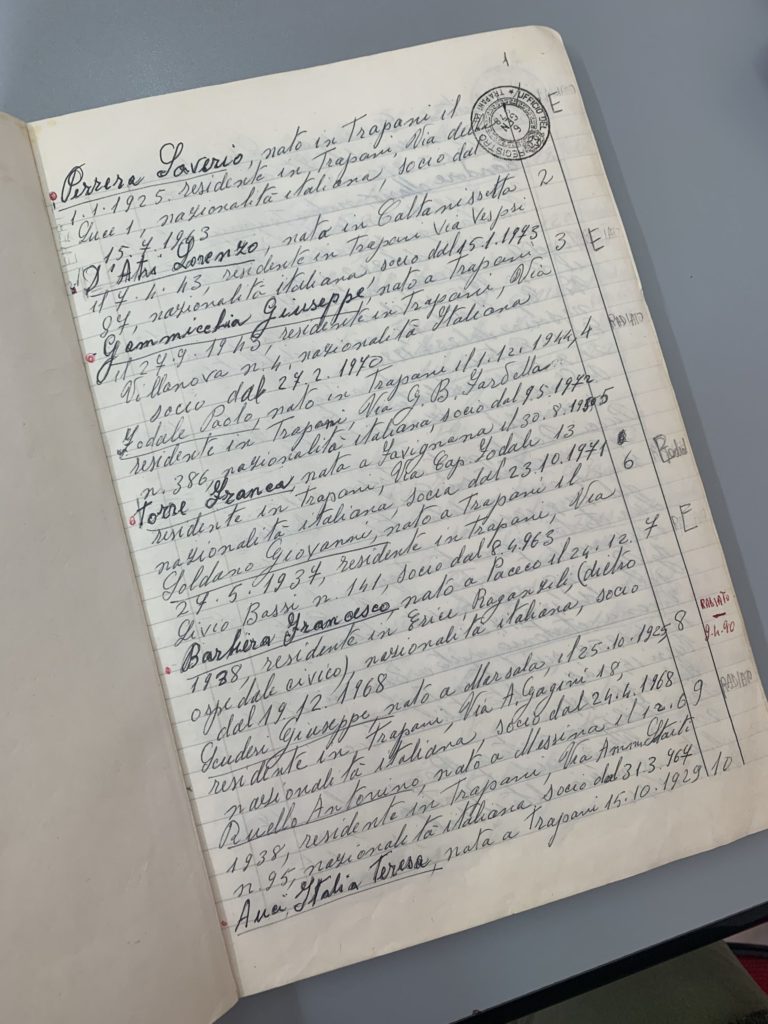 1
UFFICIO DEL REGISTRO TRAPANI
E
Perrera Saverio, nato in Trapani il
1.1.1925. residente in Trapani, Via
Luce 1, nazionalità italiana, socio dal
15.7.1963
2
D'Atri Lorenzo, nato in Caltanissetta
il 7.4.43, residente in Trapani Via Vespri
87, nazionalità italiana socio dal 15.1.1973
3 E
Gammicchia Giuseppe, nato a Trapani
il 27.9.1943, residente in Trapani, Via
Villanova n. 4, nazionalità Italiana
socio dal 27.2.1970
RADIATO
Todale Paolo, nato in Trapani il 1.12.1944, 4
residente in Trapani, Via G. B. Fardella
n. 386, nazionalità italiana, socio dal 9.5.1972
Torre Franca, nata a Favignana il 30.8. 5
residente in Trapani, Via Cap. Todale 13
nazionalità italiana, socia dal 23.10.1971
6
Soldano Giovanni, nato a Trapani il
27.5.1937, residente in Trapani, Via
Livio Bassi n. 141, socio dal 8.4.963
7 E
Barbiera Francesco, nato a Paceco il 24.12.
1938, residente in Erice Raganzili, (dietro
ospedale civico), nazionalità italiana, socio
dal 19.12.1968
RADIATO
9.4.90
Scuderi Giuseppe, nato a Marsala, il 25.10.1925 8
residente in Trapani, Via A. Gagini 18,
nazionalità italiana, socio dal 24.4.1968
RADIATO
Antonino, nato a Messina il 12.6 9
1938, residente in Trapani, Via Ammiraglio Staiti
n. 95, nazionalità italiana, socio dal 31.3.967
Auci Italia Teresa, nata a Trapani 15.10.1929 10